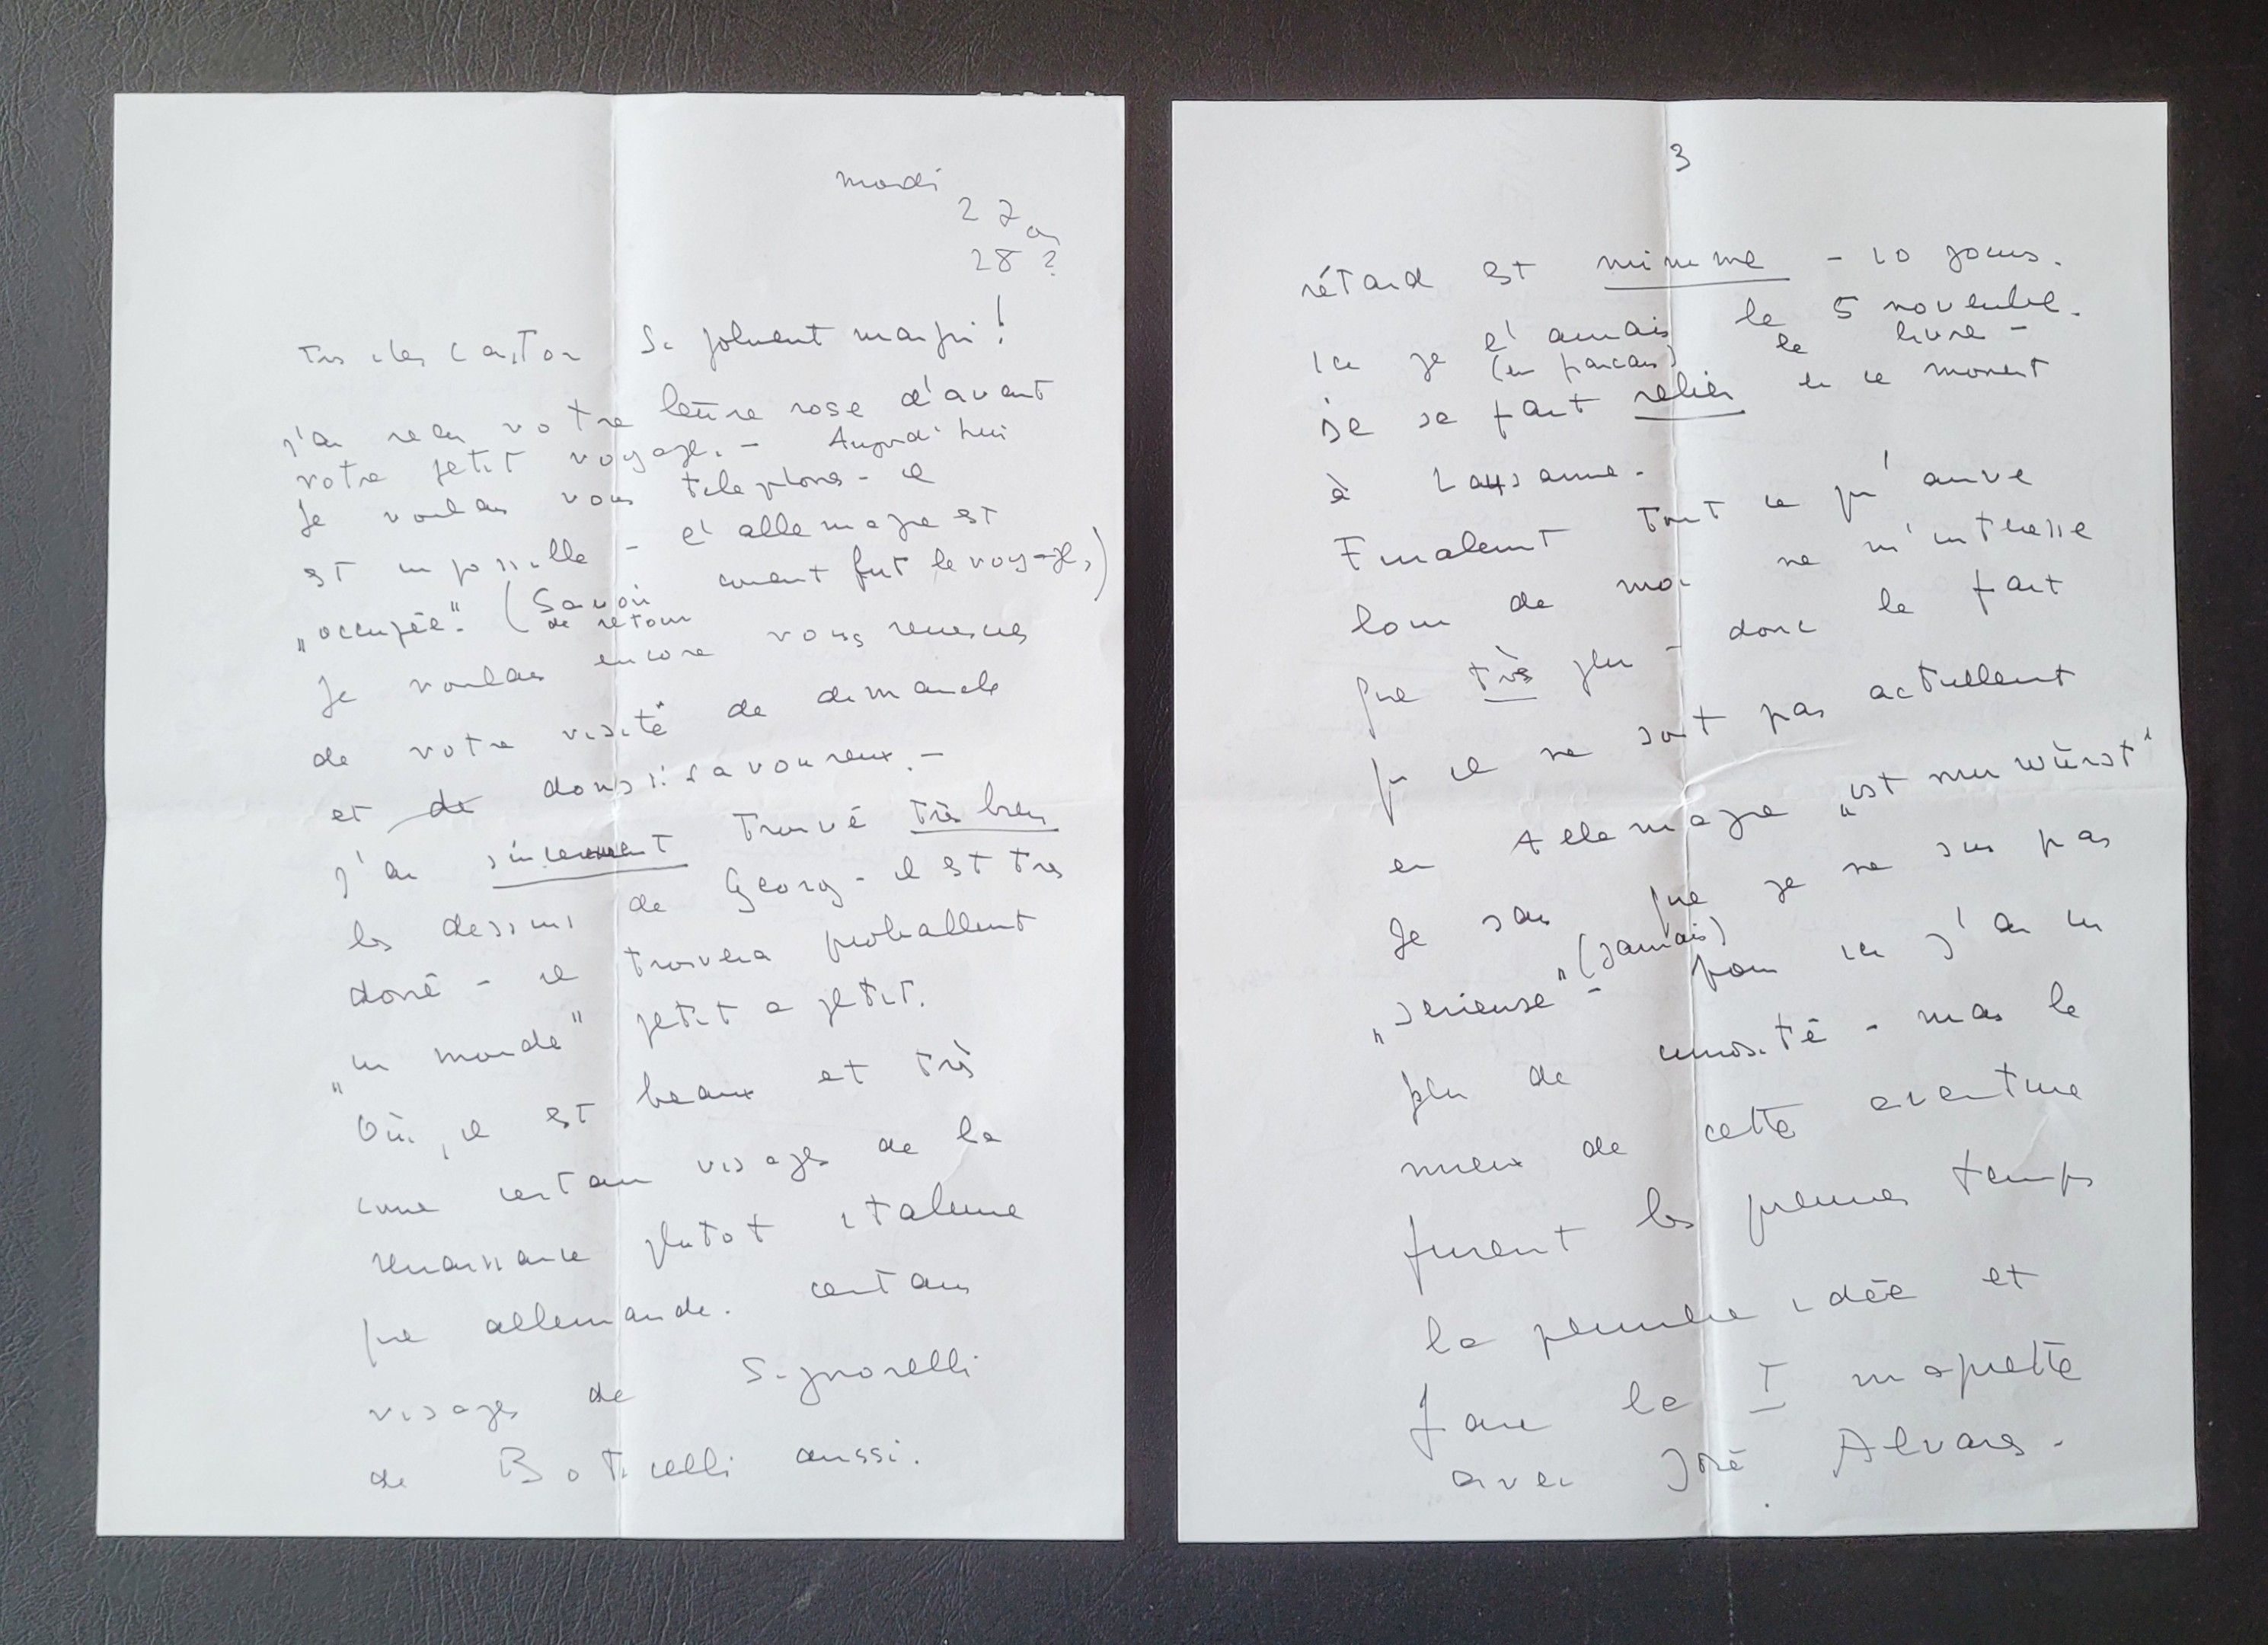 mardi
27 ou
28 ?
Très cher Castor si joliment maigri !
J'ai reçu votre lettre rose d'avant
votre petit voyage. - Aujourd'hui
Je voulais vous telephoner - il
est impossible - l'allemagne est
„occupée". (Savoir comment fut le voyage,)
de retour
Je voulais encore vous remercier
de votre visite" de dimanche
et de dons si savoureux. -
J'ai sincerement trouvé très bien
les dessins de Georg - il est très
doué - il trouvera probablement
„un monde" petit a petit.
Oui, il est beaux et très
comme certain visages de la
renaissance plutot italienne
que allemande. certains
visages de Signorelli
de Boticelli aussi.
3
rétard est minime - 10 jours.
Ici je l'aurais le 5 novembre.
(en français) le livre -
Il se fait relier en ce moment
à Lausanne.
Finalement tout ce qu'arrive
loin de moi ne m'interesse
que très peu - donc le fait
qu'il ne soit pas actuellement
en Allemagne „ist mir würst"
Je sais que je ne suis pas
„serieuse" (jamais) - pour ici j'ai un
peu de curiosité - mais le
mieux de cette aventure
furent les premiers temps
la première idée et
faire la I maquette
avec José Alvares.